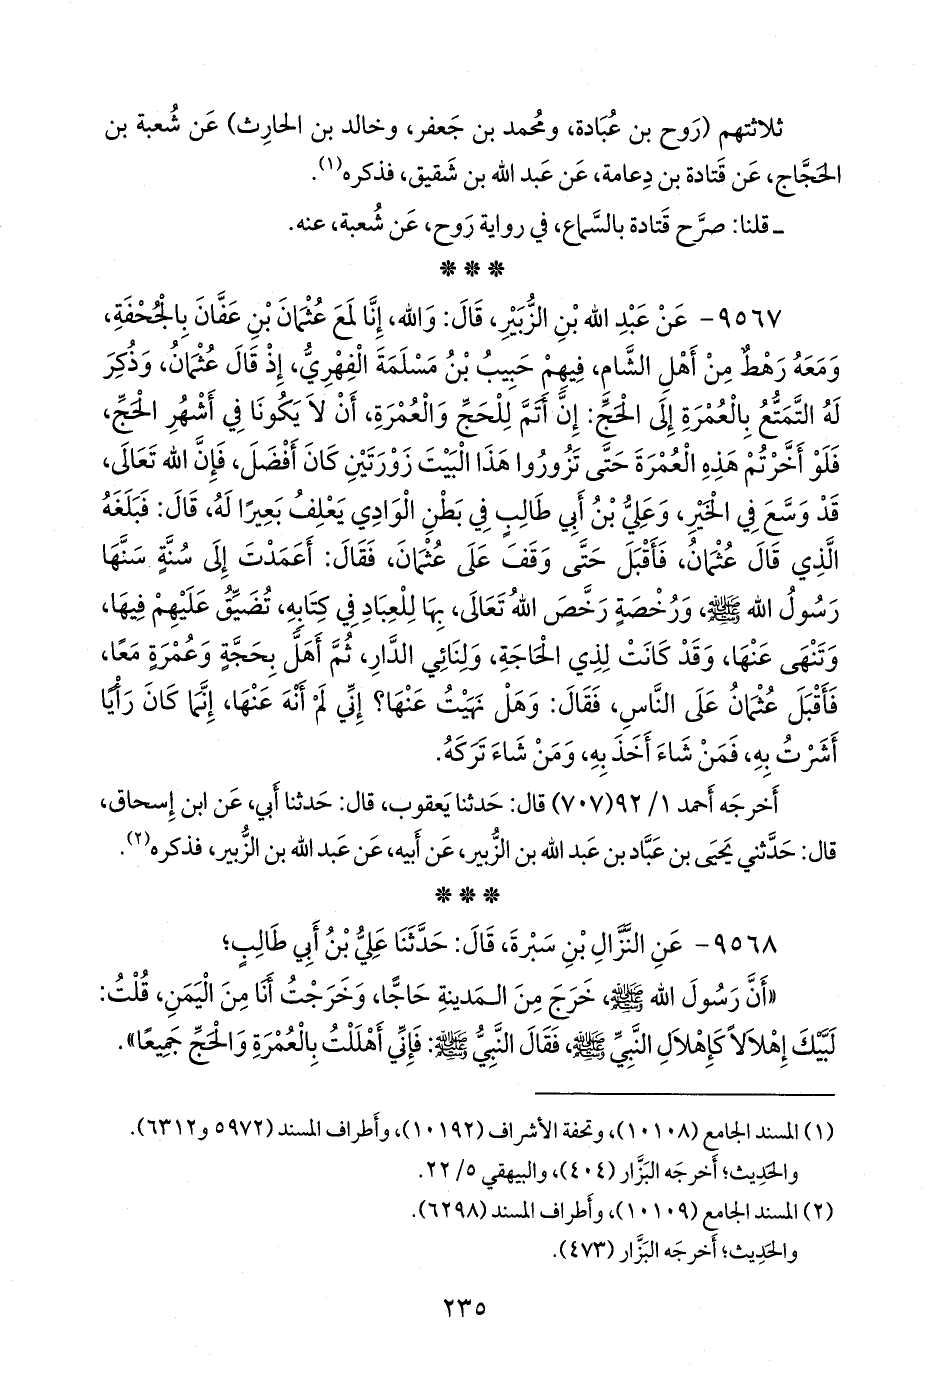 ثلاثتهم (رَوح بن عُبَادة، ومُحمد بن جَعفر، وخالد بن الحارِث) عَن شُعبة بن
الحَجَّاج، عَن قَتادة بن دِعامة، عَن عَبد الله بن شَقيق، فذكره(١).
ـ قلنا: صرَّح قَتادة بالسَّماع، في رواية رَوح، عَن شُعبة، عنه.
* * *
٩٥٦٧- عَنْ عَبْدِ الله بْنِ الزُّبَيْرِ، قَالَ: وَالله، إِنَّا لَمَعَ عُثْمَانَ بْنِ عَفَّانَ بِالْجُحْفَةِ،
وَمَعَهُ رَهْطٌ مِنْ أَهْلِ الشَّامِ، فِيهِمْ حَبِيبُ بْنُ مَسْلَمَةَ الْفِهْرِيُّ، إِذْ قَالَ عُثْمَانُ، وَذُكِرَ
لَهُ التَّمَتُّعُ بِالْعُمْرَةِ إِلَى الْحَجِّ: إِنَّ أَتَمَّ لِلْحَجِّ وَالْعُمْرَةِ، أَنْ لاَ يَكُونَا فِي أَشْهُرِ الْحَجِّ،
فَلَوْ أَخَّرْتُمْ هَذِهِ الْعُمْرَةَ حَتَّى تَزُورُوا هَذَا الْبَيْتَ زَوْرَتَيْنِ كَانَ أَفْضَلَ، فَإِنَّ الله تَعَالَى،
قَدْ وَسَّعَ فِي الْخَيْرِ، وَعَلِيُّ بْنُ أَبِي طَالِبٍ فِي بَطْنِ الْوَادِي يَعْلِفُ بَعِيرًا لَهُ، قَالَ: فَبَلَغَهُ
الَّذِي قَالَ عُثْمَانُ، فَأَقْبَلَ حَتَّى وَقَفَ عَلَى عُثْمَانَ، فَقَالَ: أَعَمَدْتَ إِلَى سُنَّةٍ سَنَّهَا
رَسُولُ الله ﷺ، وَرُخْصَةٍ رَخَّصَ اللهُ تَعَالَى، بِهَا لِلْعِبَادِ فِي كِتَابِهِ، تُضَيِّقُ عَلَيْهِمْ فِيهَا،
وَتَنْهَى عَنْهَا، وَقَدْ كَانَتْ لِذِي الْحَاجَةِ، وَلِنَائِي الدَّارِ، ثُمَّ أَهَلَّ بِحَجَّةٍ وَعُمْرَةٍ مَعًا،
فَأَقْبَلَ عُثْمَانُ عَلَى النَّاسِ، فَقَالَ: وَهَلْ نَهَيْتُ عَنْهَا؟ إِنِّي لَمْ أَنْهَ عَنْهَا، إِنَّمَا كَانَ رَأْيًا
أَشَرْتُ بِهِ، فَمَنْ شَاءَ أَخَذَ بِهِ، وَمَنْ شَاءَ تَرَكَهُ.
أَخرجَه أَحمد ١/ ٩٢(٧٠٧) قال: حَدثنا يَعقوب، قال: حَدثنا أَبي، عَن ابن إِسحاق،
قال: حَدَّثني يَحيَى بن عَبَّاد بن عَبد الله بن الزُّبير، عَن أَبيه، عَن عَبد الله بن الزُّبير، فذكره(٢).
* * *
٩٥٦٨- عَنِ النَّزَّالِ بْنِ سَبْرَةَ، قَالَ: حَدَّثَنَا عَلِيُّ بْنُ أَبِي طَالِبٍ؛
«أَنَّ رَسُولَ الله ﷺ، خَرَجَ مِنَ الـمَدينةِ حَاجًّا، وَخَرَجْتُ أَنَا مِنَ الْيَمَنِ، قُلْتُ:
لَبَّيْكَ إِهْلاَلاً كَإِهْلاَلِ النَّبِيِّ ﷺ، فَقَالَ النَّبِيُّ ﷺ: فَإِنِّي أَهْلَلْتُ بِالْعُمْرَةِ وَالْحَجِّ جَمِيعًا».
(١) المسند الجامع (١٠١٠٨)، وتحفة الأشراف (١٠١٩٢)، وأَطراف المسند (٥٩٧٢ و٦٣١٢).
والحَدِيث؛ أَخرجَه البَزَّار (٤٠٤)، والبيهقي ٥/ ٢٢.
(٢) المسند الجامع (١٠١٠٩)، وأَطراف المسند (٦٢٩٨).
والحَدِيث؛ أَخرجَه البَزَّار (٤٧٣).
٢٣٥